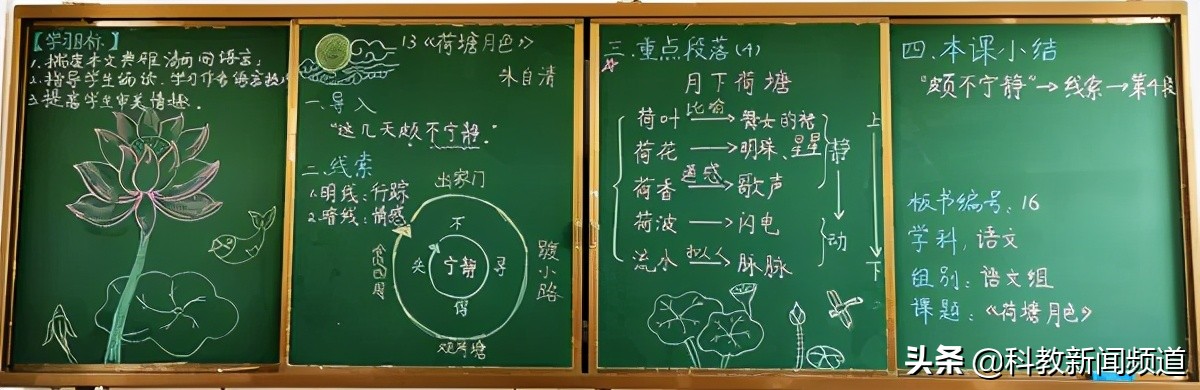 【学习目标】
1.揣度本文典雅、清丽的语言；
2.指导学生诵读、学习作者语言
3.提高学生审美情趣.
13《荷塘月色》
朱自清
一.导入
"这几天颇不宁静."
二.线索
1.明线：行踪
2.暗线：情感
出家门
踱小路
观荷塘
回
不
寻
得
失
宁静
三.重点段落(4)
月下荷塘
荷叶 比喻→ 舞女的裙
荷花 → 明珠、星星
荷香 通感→ 歌声
荷波 → 闪电
流水 拟人→ 脉脉
静
↓
动
上
↓
下
四.本课小结
"颇不宁静"→线索→第4段
板书编号：16
学科：语文
组别：语文组
课题：《荷塘月色》
头条 @科教新闻频道